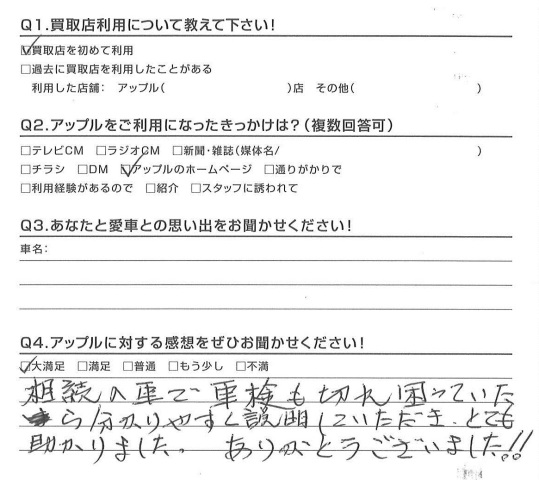 Q1.買取店利用について教えて下さい!
☑買取店を初めて利用
□過去に買取店を利用したことがある
利用した店舗: アップル( )店 その他( )
Q2.アップルをご利用になったきっかけは?(複数回答可)
□テレビCM □ラジオCM □新聞・雑誌(媒体名/ )
□チラシ □DM ☑アップルのホームページ □通りがかりで
□利用経験があるので □紹介 □スタッフに誘われて
Q3.あなたと愛車との思い出をお聞かせください!
車名:
Q4.アップルに対する感想をぜひお聞かせください!
☑大満足 □満足 □普通 □もう少し □不満
相続の車で車検も切れ困っていた
ら分かりやすく説明していただき、とても
助かりました。 ありがとうございました!!